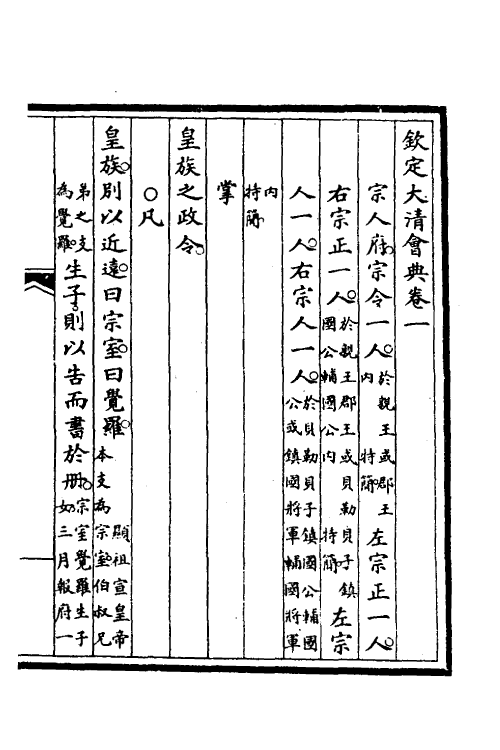 欽定大清會典卷一
宗人府。宗令一人。於親王或郡王內特簡。左宗正一人。
右宗正一人。於親王郡王或貝勒貝子鎮國公輔國公內特簡。左宗
人一人。右宗人一人。於貝勒貝子鎮國公輔國公或鎮國將軍輔國將軍
內特簡。
掌
皇族之政令。
○凡
皇族。別以近遠。曰宗室。曰覺羅。顯祖宣皇帝本支為宗室。伯叔兄
弟之支為覺羅。生子。則以告而書於冊。宗室覺羅生子女。三月報府一